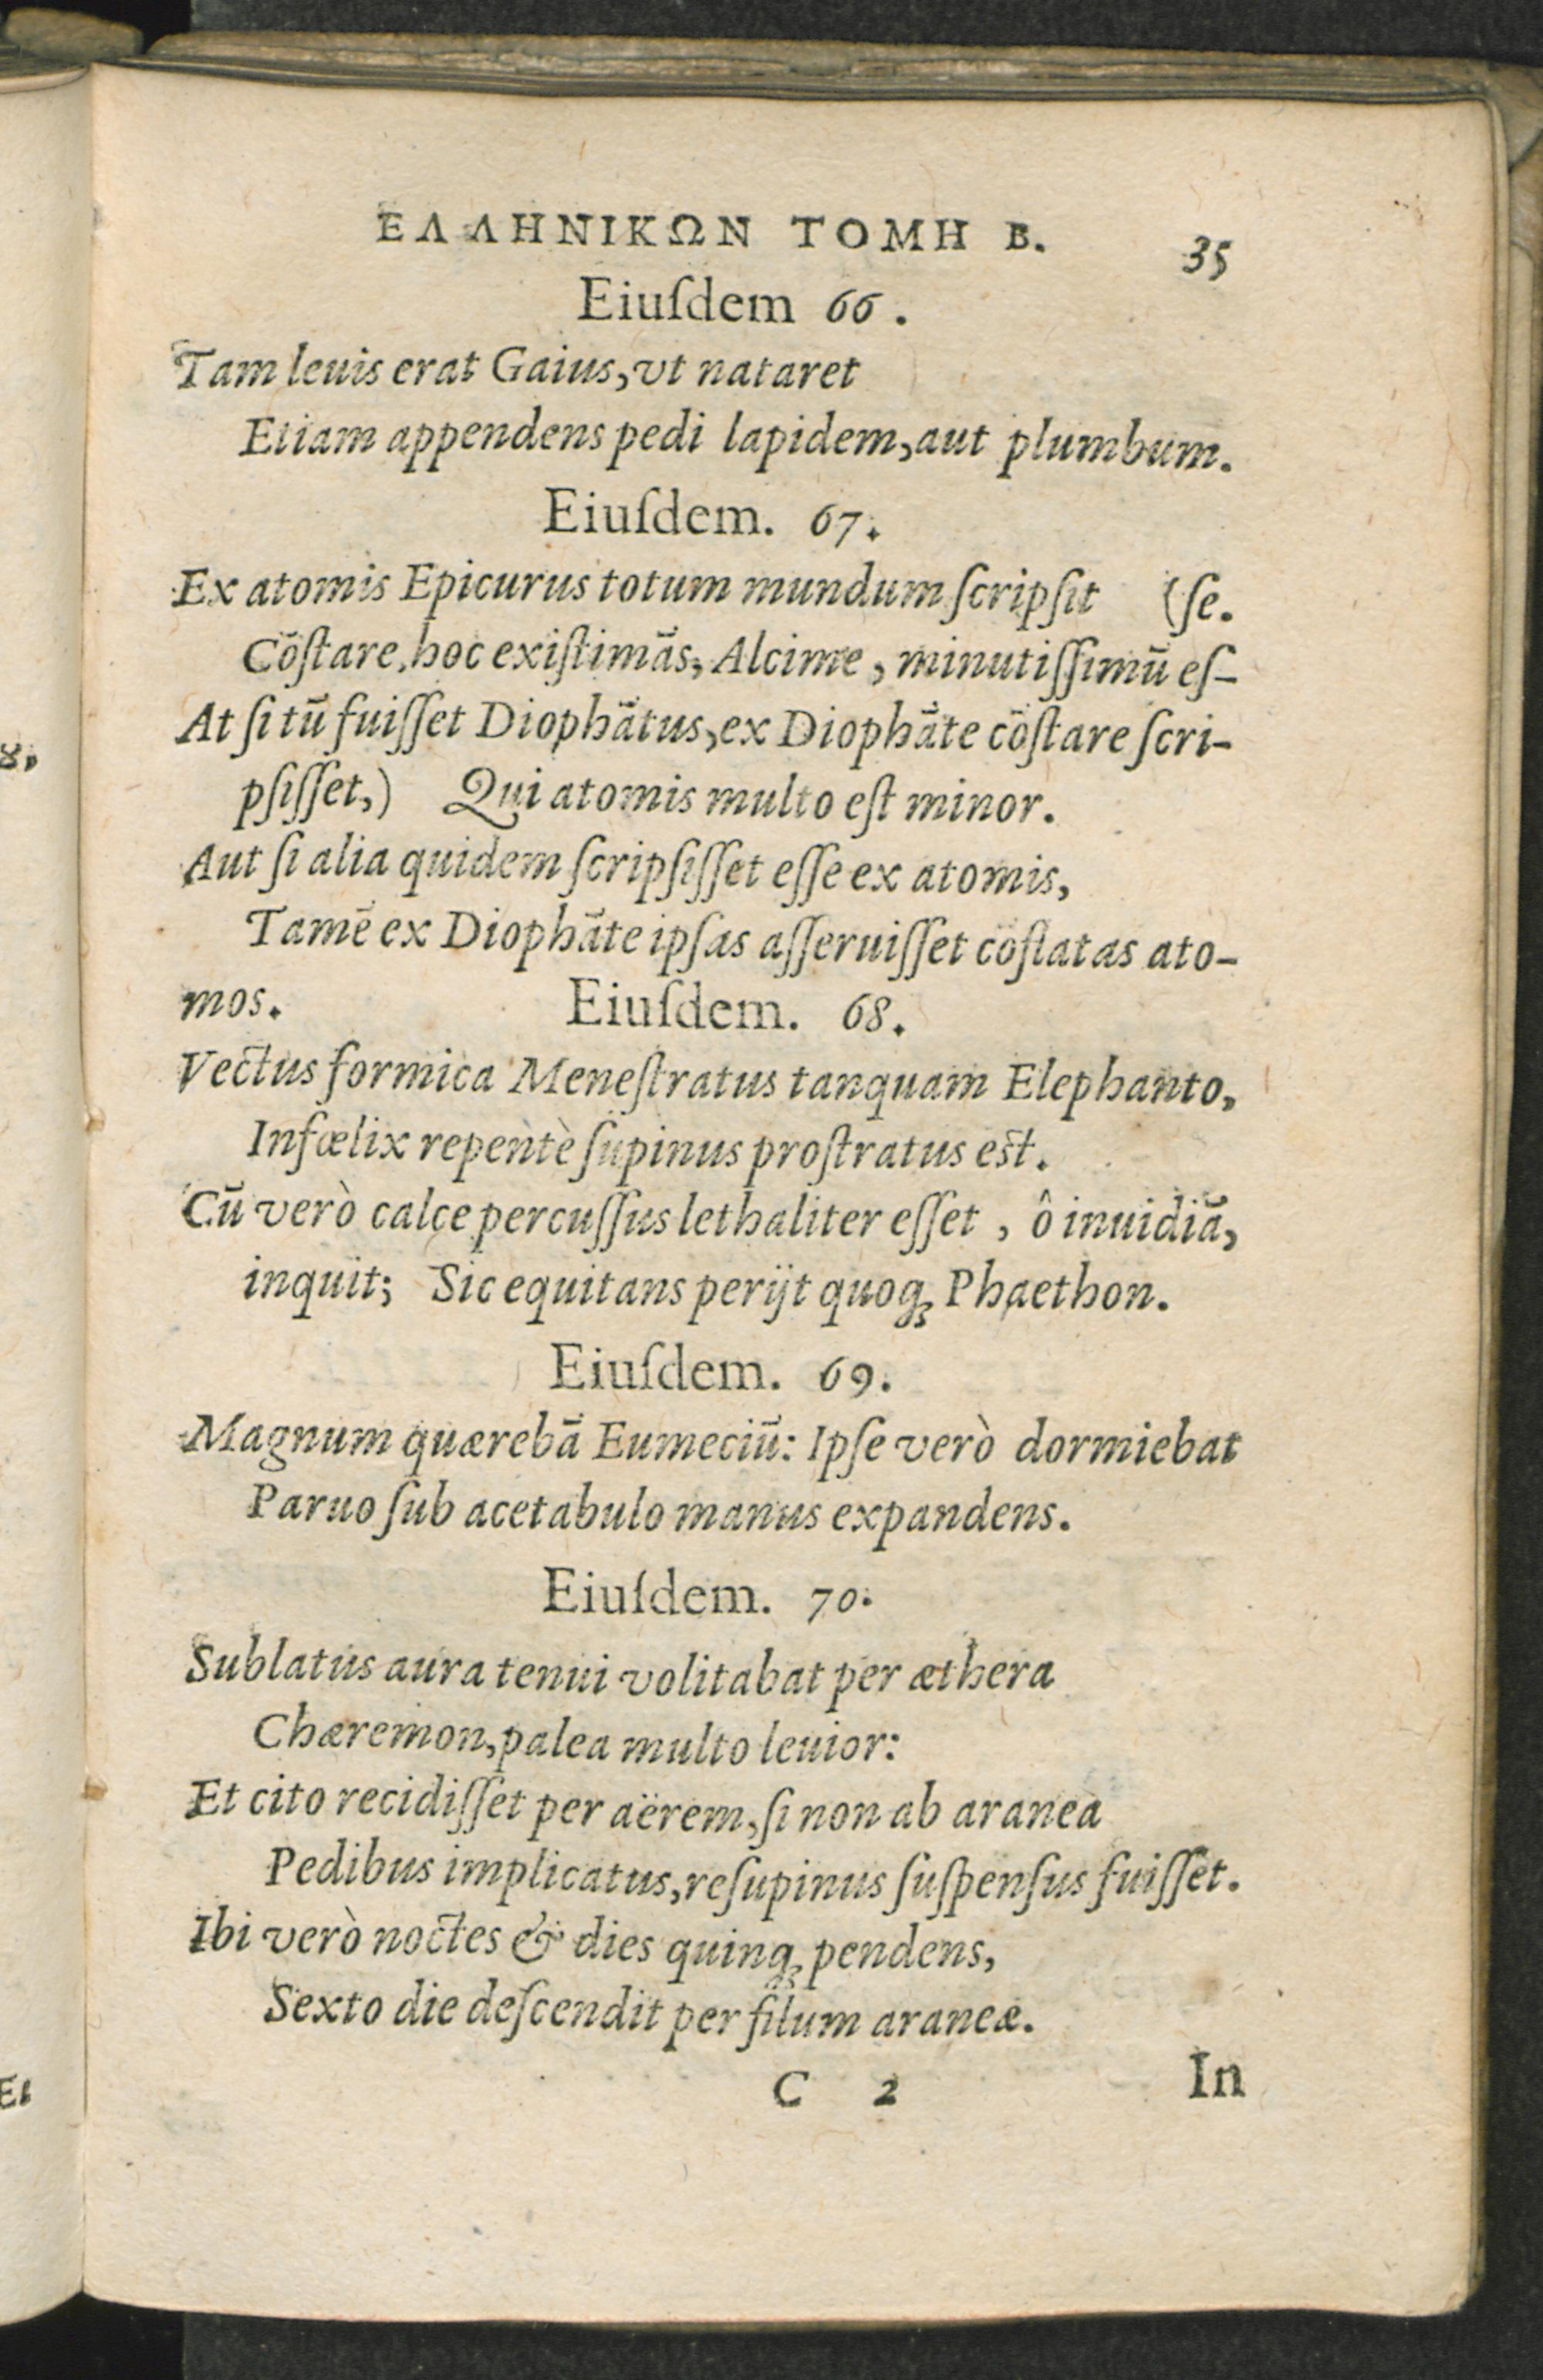 ΕΛΛΗΝΙΚΩΝ ΤΟΜΗ Β. 35
Eiuſdem 66.
Tam leuis erat Gaius, vt nataret
Etiam appendens pedi lapidem, aut plumbum.
Eiuſdem. 67.
Ex atomis Epicurus totum mundum ſcripſit (ſe.
Cõſtare, hoc exiſtimãs, Alcime, minutiſſimũ eſ-
At ſi tũ fuiſſet Diophãtus, ex Diophãte cõſtare ſcri-
pſiſſet,) Qui atomis multo eſt minor.
Aut ſi alia quidem ſcripſiſſet eſſe ex atomis,
Tamẽ ex Diophãte ipſas aſſeruiſſet cõſtatas ato-
mos. Eiuſdem. 68.
Vectus formica Meneſtratus tanquam Elephanto,
Infœlix repentè ſupinus proſtratus est.
Cũ verò calce percuſſus lethaliter eſſet, ô inuidiã,
inquit; Sic equitans perijt quoq; Phaethon.
Eiuſdem. 69.
Magnum quærebã Eumeciũ: Ipſe verò dormiebat
Paruo ſub acetabulo manus expandens.
Eiuſdem. 70.
Sublatus aura tenui volitabat per æthera
Chæremon, palea multo leuior:
Et cito recidiſſet per aërem, ſi non ab aranea
Pedibus implicatus, reſupinus ſuſpenſus fuiſſet.
Ibi verò noctes & dies quinq; pendens,
Sexto die deſcendit per filum araneæ.
C 2 In